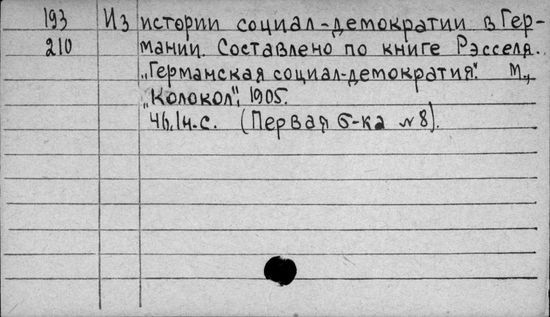 193 Из истории социал-демократии в Гер-
210 мании. Составлено по книге Рэсселя.
„Германская социал-демократия". М.,
„Колокол", 1905.
46, 1н.с. (Первая б-ка №8).